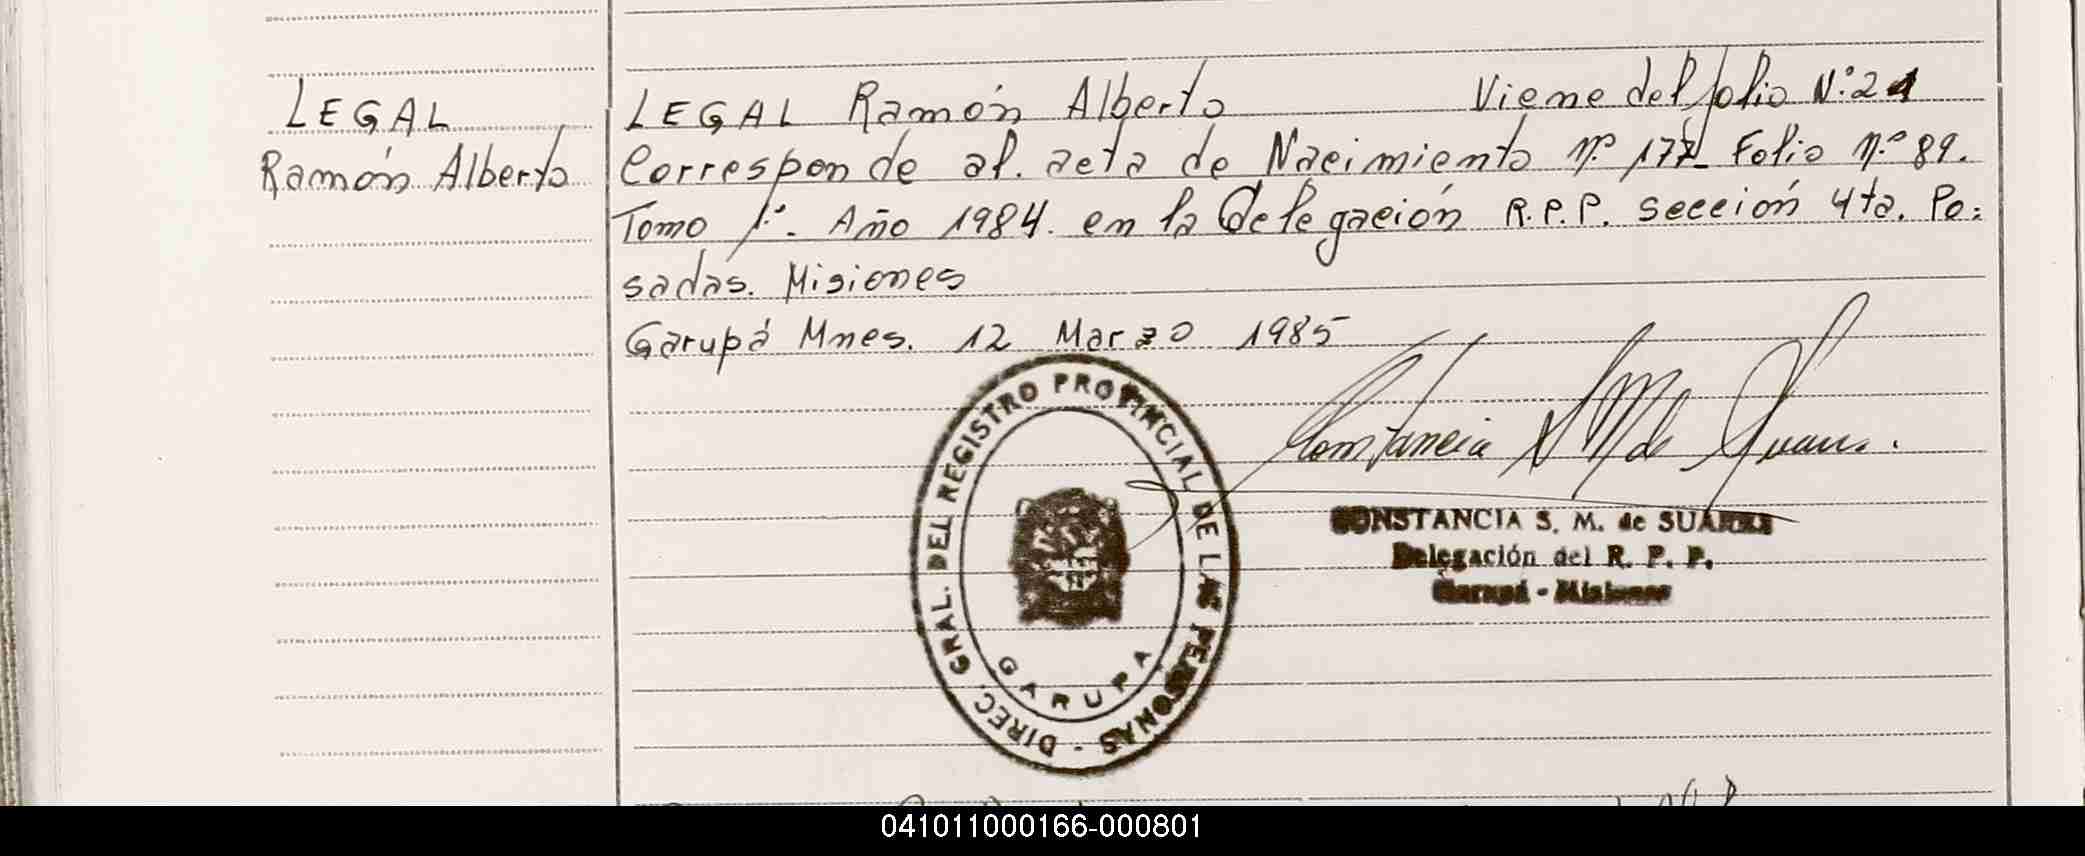 LEGAL
Ramón Alberto
LEGAL Ramón Alberto Viene del folio N:º 21
Corresponde al. acta de Nacimiento nº 177 Folio n.º 89.
Tomo 1º. Año 1984. en la Delegación R.P.P. sección 4ta. Po:
sadas. Misiones
Garupá Mnes. 12 Marzo 1985
Constancia S M de Suarez.
DIREC. GRAL. DEL REGISTRO PROVINCIAL DE LAS PERSONAS -
GARUPA
CONSTANCIA S. M. de SUAREZ
Delegación del R. P. P.
Garupá - Misiones
041011000166-000801